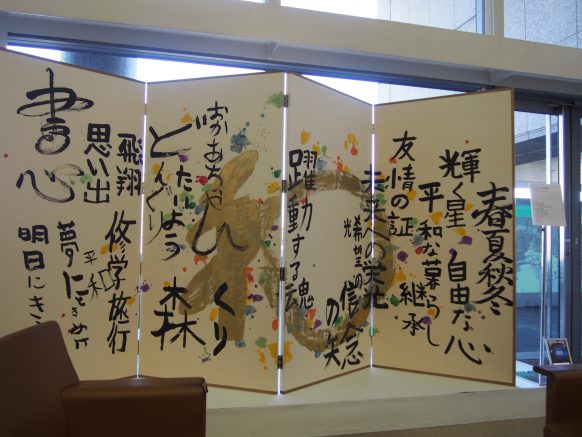 春夏秋冬
輝く星 自由な心
平和な暮らし
継承
友情の証
未来への栄光
希望の光
信念の矢
躍動する魂
和
おかあさん
どんぐり
たいよう
くり
森
飛翔
思い出
修学旅行
平和
夢にときめけ
明日にきらめけ
書心